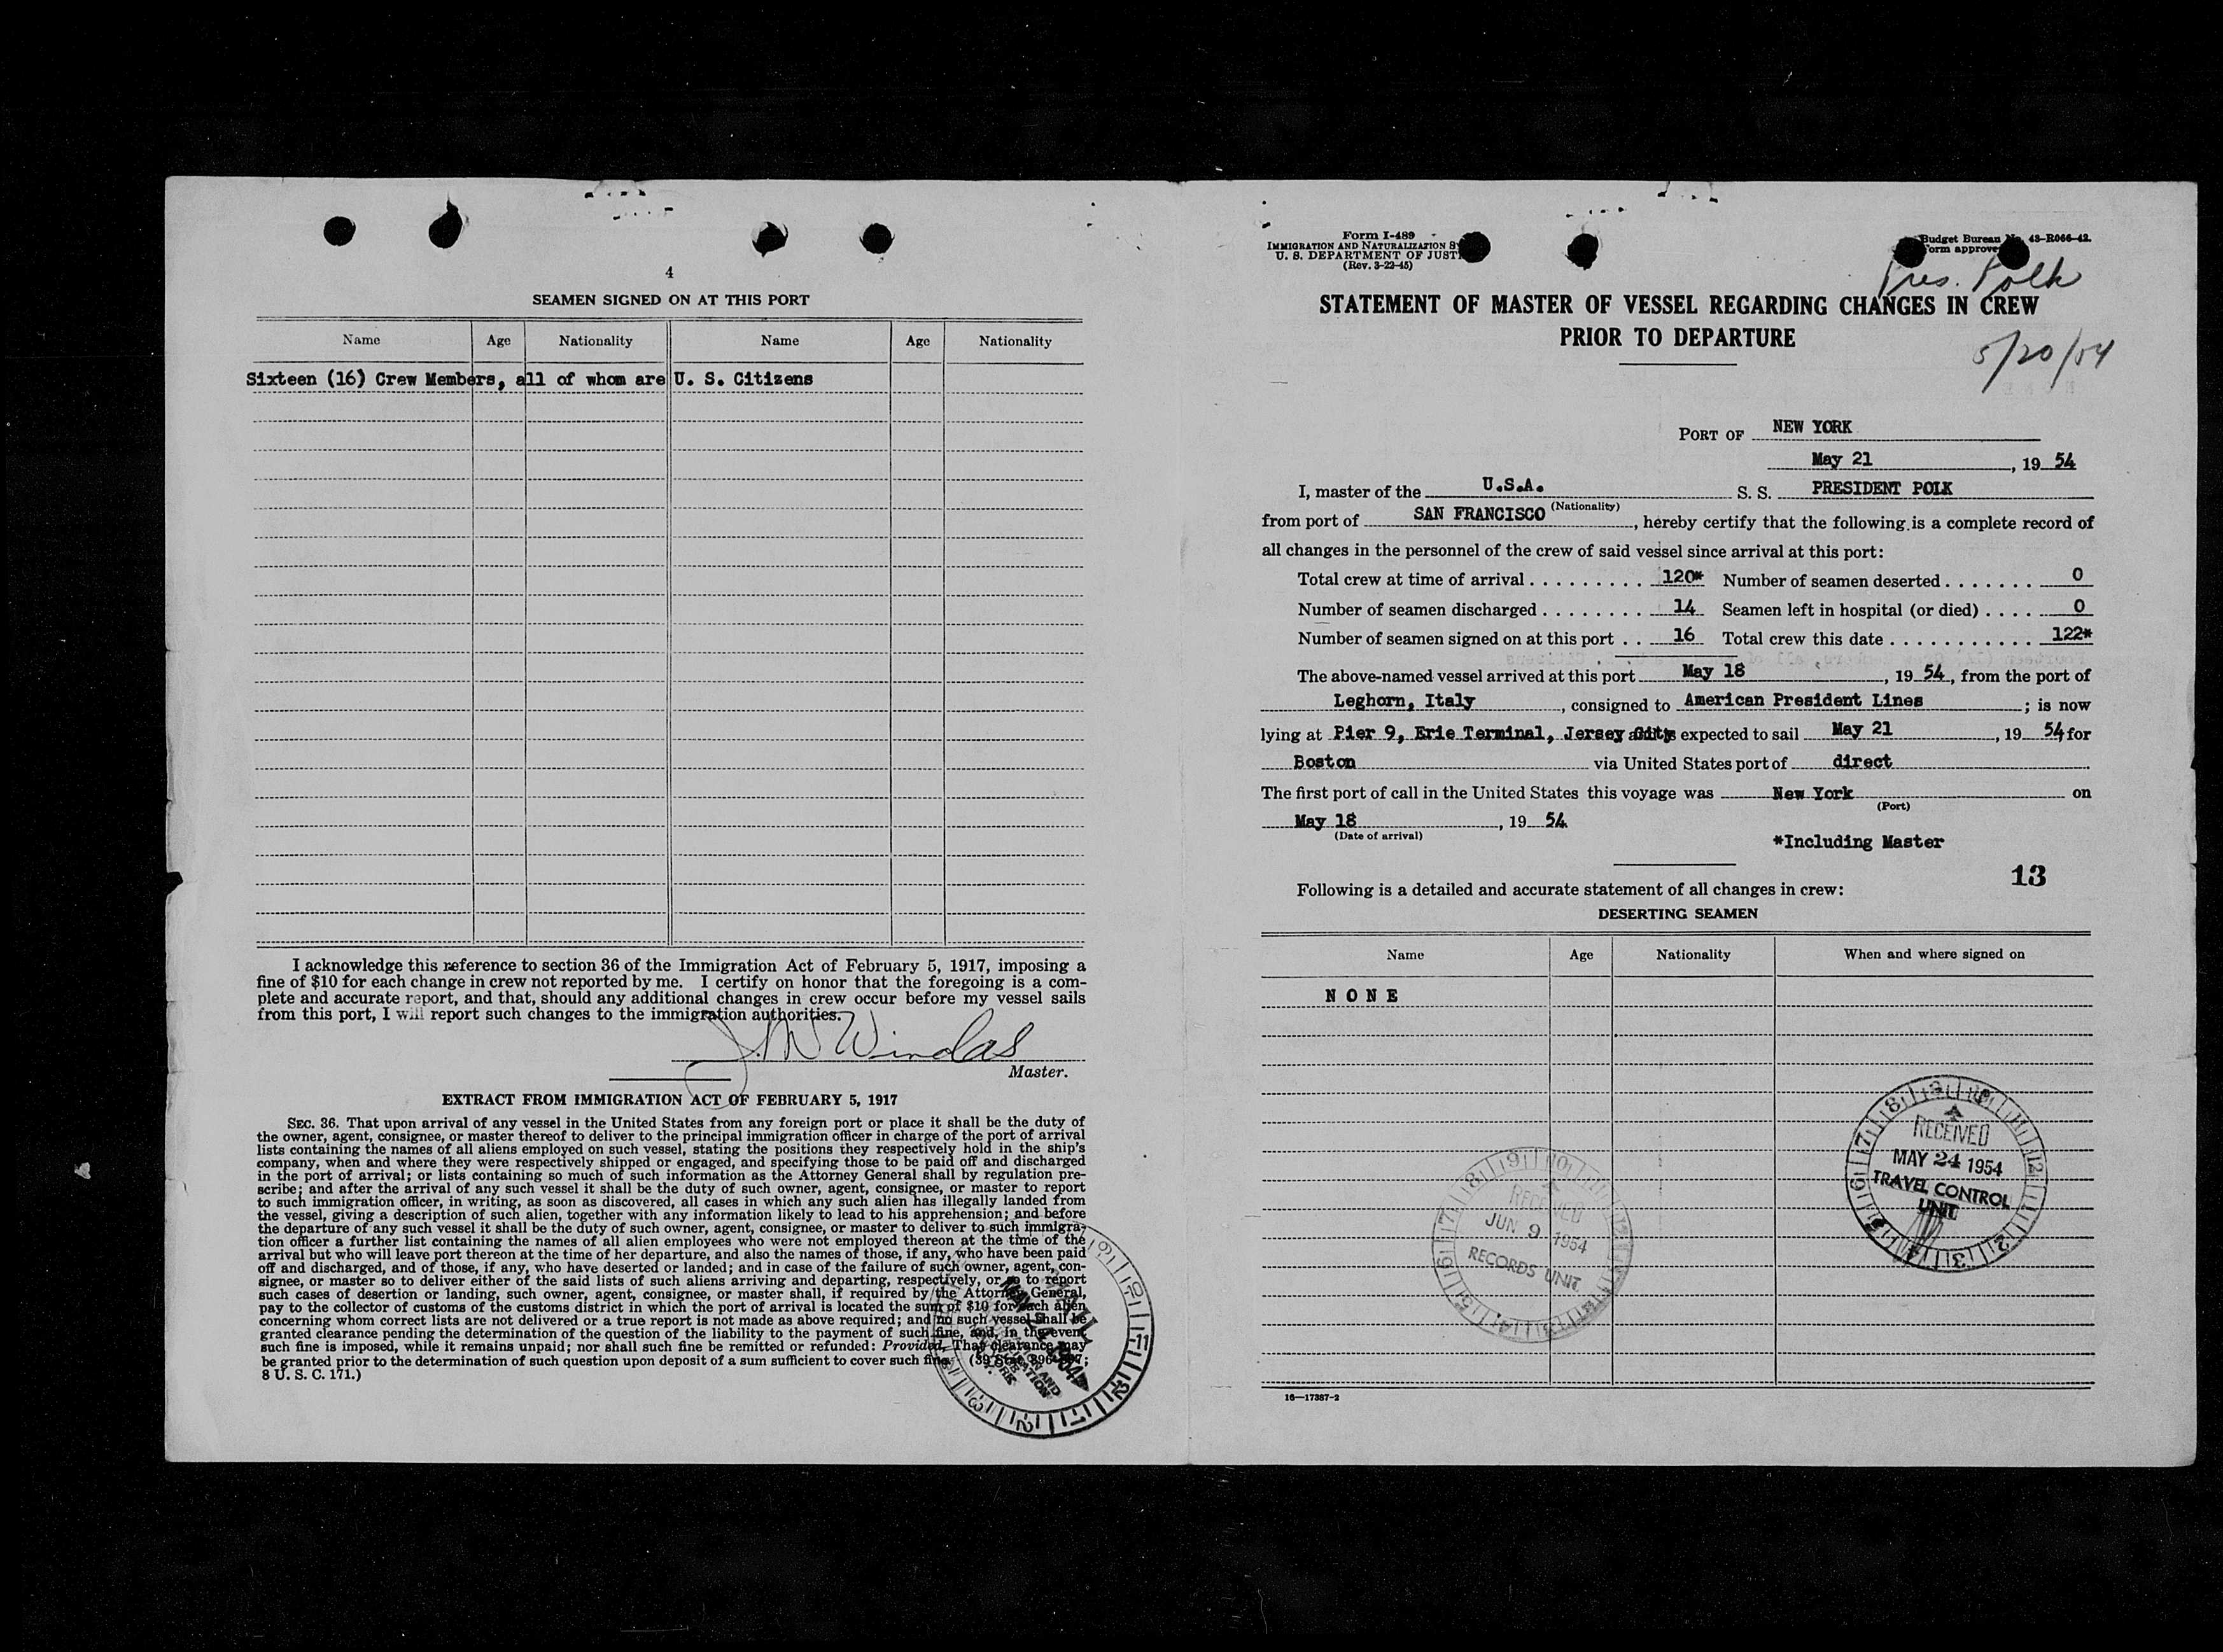 4
SEAMEN SIGNED ON AT THIS PORT
Name Age Nationality Name Age Nationality
Sixteen (16) Crew Members, all of whom are U. S. Citizens
I acknowledge this reference to section 36 of the Immigration Act of February 5, 1917, imposing a
fine of $10 for each change in crew not reported by me. I certify on honor that the foregoing is a com-
plete and accurate report, and that, should any additional changes in crew occur before my vessel sails
from this port, I will report such changes to the immigration authorities.
Master.
EXTRACT FROM IMMIGRATION ACT OF FEBRUARY 5, 1917
SEC. 36. That upon arrival of any vessel in the United States from any foreign port or place it shall be the duty of
the owner, agent, consignee, or master thereof to deliver to the principal immigration officer in charge of the port of arrival
lists containing the names of all aliens employed on such vessel, stating the positions they respectively hold in the ship's
company, when and where they were respectively shipped or engaged, and specifying those to be paid off and discharged
in the port of arrival; or lists containing so much of such information as the Attorney General shall by regulation pre-
scribe; and after the arrival of any such vessel it shall be the duty of such owner, agent, consignee, or master to report
to such immigration officer, in writing, as soon as discovered, all cases in which any such alien has illegally landed from
the vessel, giving a description of such alien, together with any information likely to lead to his apprehension; and before
the departure of any such vessel it shall be the duty of such owner, agent, consignee, or master to deliver to such immigra-
tion officer a further list containing the names of all alien employees who were not employed thereon at the time of the
arrival but who will leave port thereon at the time of her departure, and also the names of those, if any, who have been paid
off and discharged, and of those, if any, who have deserted or landed; and in case of the failure of such owner, agent, con-
signee, or master so to deliver either of the said lists of such aliens arriving and departing, respectively, or so to report
such cases of desertion or landing, such owner, agent, consignee, or master shall, if required by the Attorney General,
pay to the collector of customs of the customs district in which the port of arrival is located the sum of $10 for each alien
concerning whom correct lists are not delivered or a true report is not made as above required; and no such vessel shall be
granted clearance pending the determination of the question of the liability to the payment of such fine, and, in the event
such fine is imposed, while it remains unpaid; nor shall such fine be remitted or refunded: Provided, That clearance may
be granted prior to the determination of such question upon deposit of a sum sufficient to cover such fine. (39 Stat. 896-897;
8 U. S. C. 171.)
Form I-489
IMMIGRATION AND NATURALIZATION
U. S. DEPARTMENT OF JUSTI
(Rev. 3-22-45)
Budget Bureau No. 43-R066-42.
Form approve
Pres. Polk
STATEMENT OF MASTER OF VESSEL REGARDING CHANGES IN CREW
PRIOR TO DEPARTURE
5/20/54
PORT OF NEW YORK
May 21, 19 54
I, master of the U.S.A. S. S. PRESIDENT POLK
(Nationality)
from port of SAN FRANCISCO, hereby certify that the following is a complete record of
all changes in the personnel of the crew of said vessel since arrival at this port:
Total crew at time of arrival . . . . . . . . . 120* Number of seamen deserted . . . . . . . 0
Number of seamen discharged . . . . . . . . 14 Seamen left in hospital (or died) . . . . 0
Number of seamen signed on at this port . . 16 Total crew this date . . . . . . . . . . . . 122*
The above-named vessel arrived at this port May 18, 19 54, from the port of
Leghorn, Italy, consigned to American President Lines; is now
lying at Pier 9, Erie Terminal, Jersey City and is expected to sail May 21, 19 54 for
Boston via United States port of direct
The first port of call in the United States this voyage was New York on
(Port)
May 18, 19 54
(Date of arrival)
*Including Master
13
Following is a detailed and accurate statement of all changes in crew:
DESERTING SEAMEN
Name Age Nationality When and where signed on
NONE
RECEIVED
MAY 24 1954
TRAVEL CONTROL
UNIT
RECEIVED
JUN 9 1954
RECORDS UNIT
16—17387-2